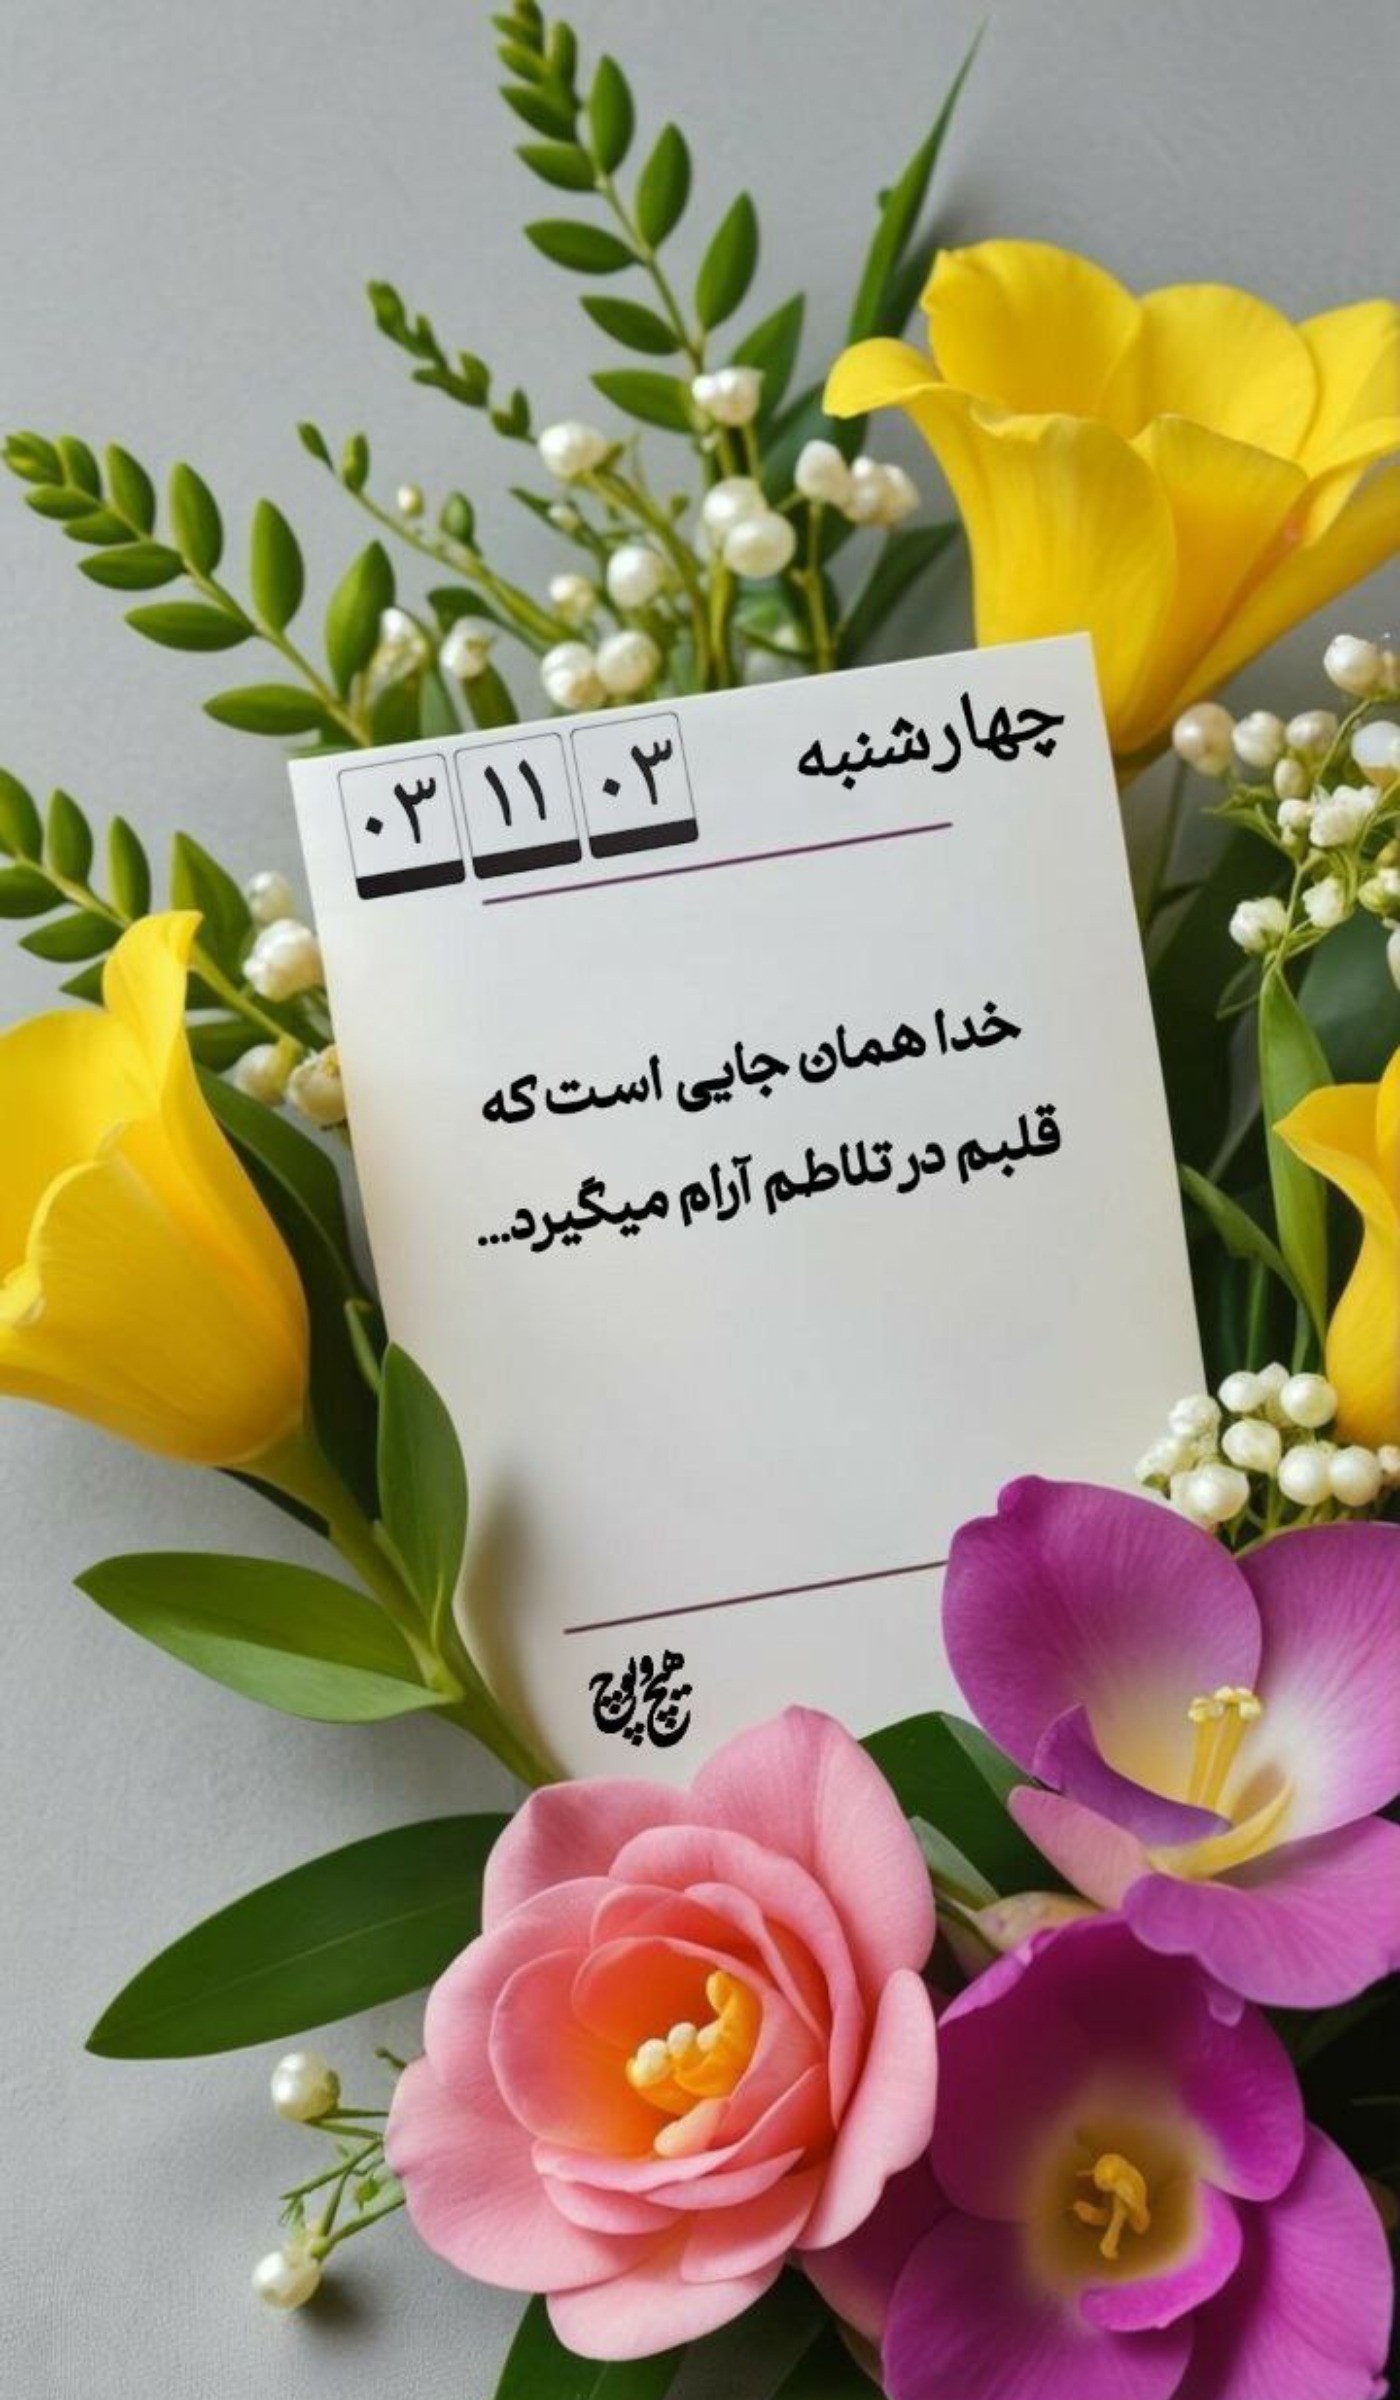 چهارشنبه
۰۳ ۱۱ ۰۳
خدا همان جایی است که
قلبم در تلاطم آرام میگیرد...
هیچ و پوچ